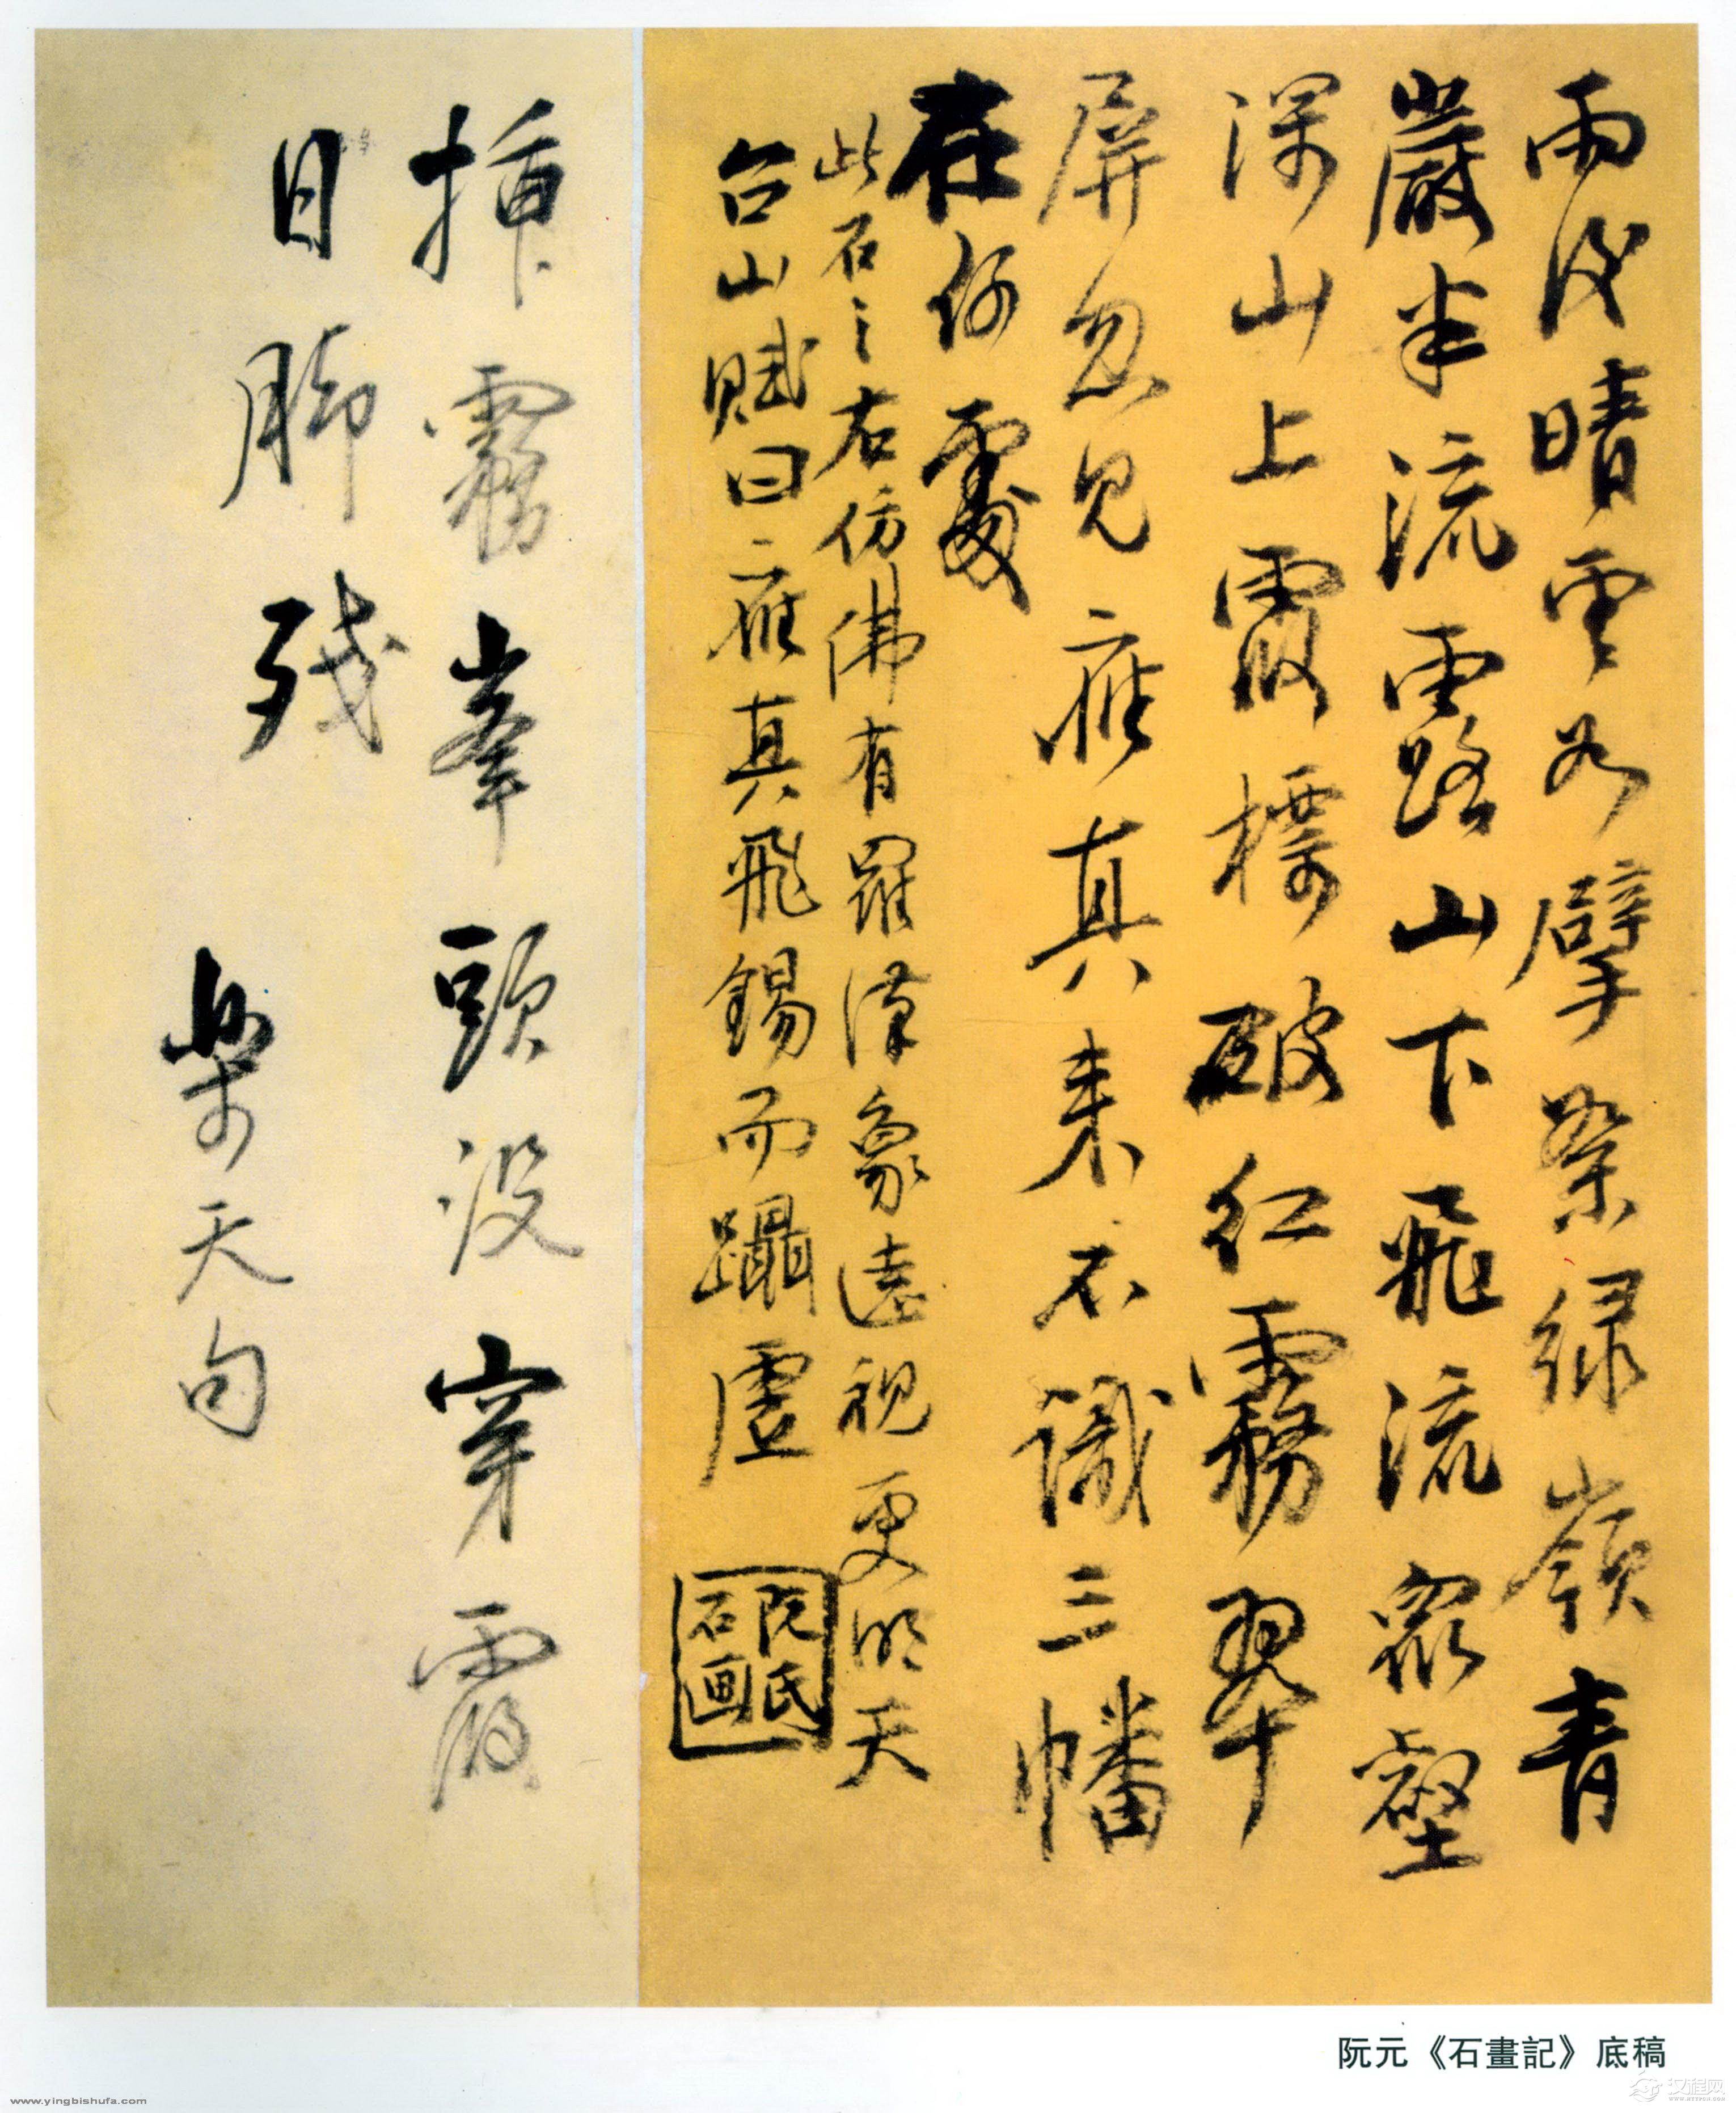 雨後晴雲如擘絮綠嶺青
巖半流露山下飛流衆壑
深山上霞標破紅霧翠
屏忽見應真來不識三幡
在何處
此石之右仿佛有羅漢象遠視更明天
台山賦曰應真飛錫而躡虛
阮氏
石画
插霧峯頭沒穿霞
日脚殘
樂天句
阮元《石畫記》底稿
www.yingbishufa.com
汉程网